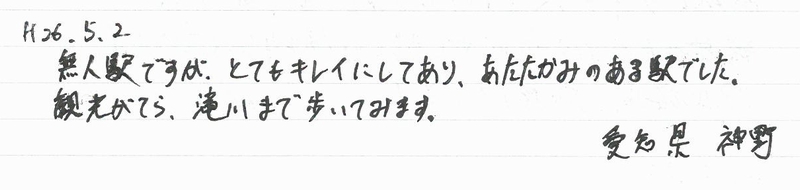 H26.5.2
無人駅ですが、とてもキレイにしてあり、あたたかみのある駅でした。
観光がてら、滝川まで歩いてみます。
愛知県 神野